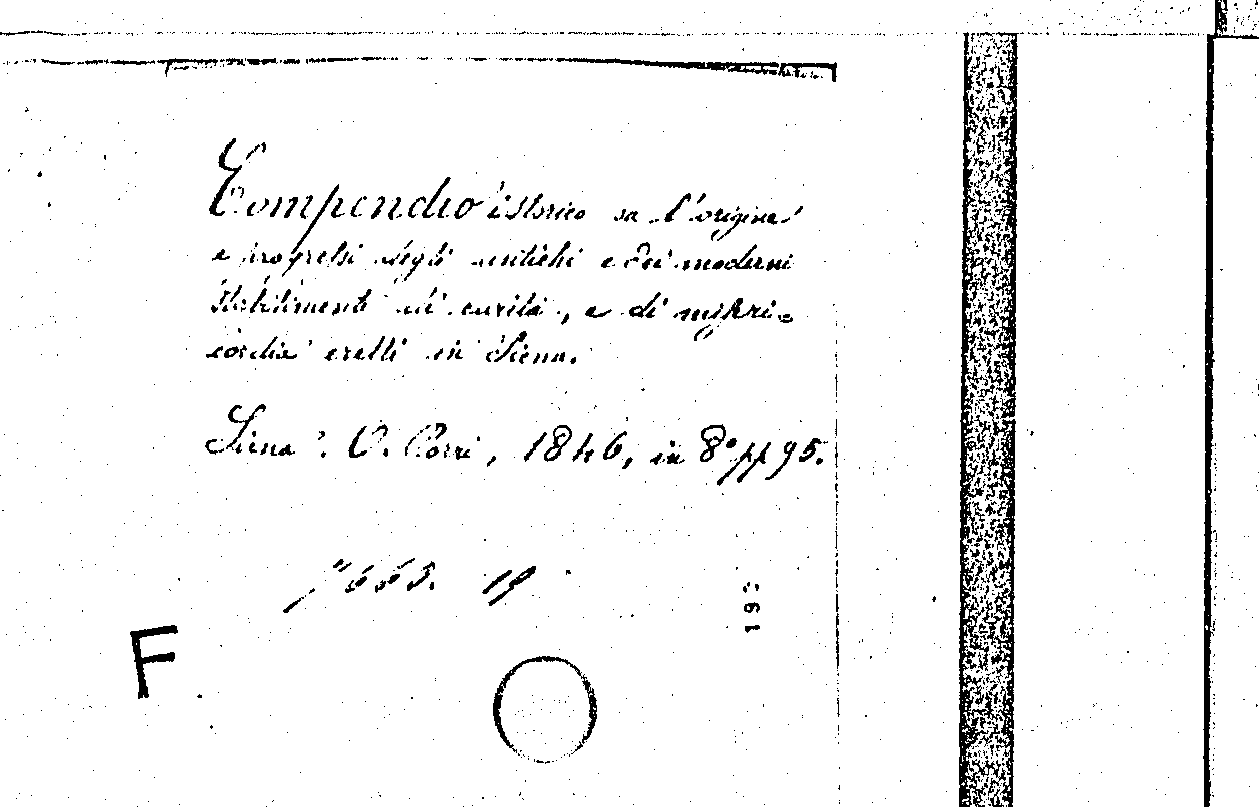 Compendio istorico su l'origine
e progressi degli antichi e dei moderni
stabilimenti di carità, e di miseri=
cordia eretti in Siena.
Siena. O. Porri, 1846, in 8° pp 95.
19
F